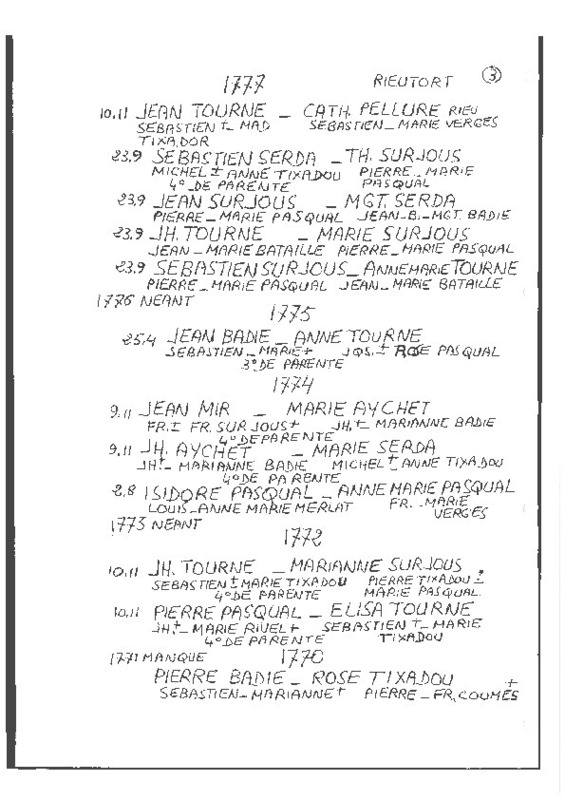 1777 RIEUTORT 3
10.11 JEAN TOURNE _ CATH. PELLURE RIEU
SEBASTIEN + _ MAD TIXADOR SEBASTIEN _ MARIE VERGES
23.9 SEBASTIEN SERDA _ TH. SURJOUS
MICHEL + ANNE TIXADOU PIERRE _ MARIE PASQUAL
4° DE PARENTE
23.9 JEAN SURJOUS _ MGT. SERDA
PIERRE _ MARIE PASQUAL JEAN-B. _ MGT. BADIE
23.9 JH. TOURNE _ MARIE SURJOUS
JEAN _ MARIE BATAILLE PIERRE _ MARIE PASQUAL
23.9 SEBASTIEN SURJOUS _ ANNEMARIE TOURNE
PIERRE _ MARIE PASQUAL JEAN _ MARIE BATAILLE
1776 NEANT
1775
25.4 JEAN BADIE _ ANNE TOURNE
SEBASTIEN _ MARIE + JOS. + ROSE PASQUAL
3° DE PARENTE
1774
9.11 JEAN MIR _ MARIE AYCHET
FR. + FR. SURJOUS + JH. + _ MARIANNE BADIE
4° DE PARENTE
9.11 JH. AYCHET _ MARIE SERDA
JH + _ MARIANNE BADIE MICHEL + ANNE TIXADOU
4° DE PARENTE
2.8 ISIDORE PASQUAL _ ANNE MARIE PASQUAL
LOUIS _ ANNE MARIE MERLAT FR. _ MARIE VERGES
1773 NEANT
1772
10.11 JH. TOURNE _ MARIANNE SURJOUS
SEBASTIEN + MARIE TIXADOU PIERRE TIXADOU + MARIE PASQUAL
4° DE PARENTE
10.11 PIERRE PASQUAL _ ELISA TOURNE
JH. + _ MARIE RIVEL + SEBASTIEN + _ MARIE TIXADOU
4° DE PARENTE
1771 MANQUE 1770
PIERRE BADIE _ ROSE TIXADOU
SEBASTIEN _ MARIANNE + PIERRE _ FR. COUMES +